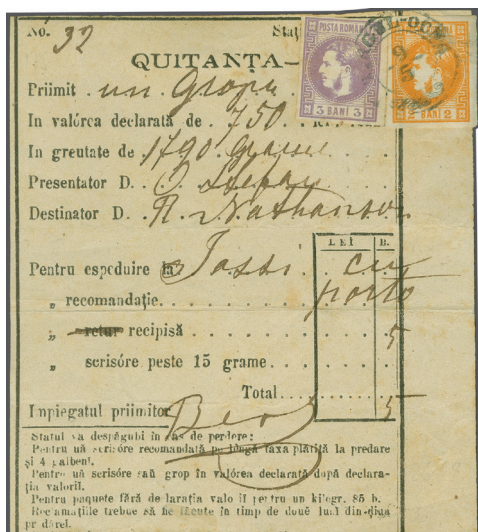 No. 32 Staț
QUITANTA—
POSTA ROMANA
3 BANI 3
2 BANI 2
Priimit un Gropu
In valórea declarată de 750 lei
In greutate de 1790 Grame
Presentator D.
Destinator D. N. Nathanson
LEI B.
Pentru espeduire la Jassi cu
„ recomandație. porto
„ retur recipisă 5
„ scrisóre peste 15 grame.
Total 5
Impiegatul priimitor
Statul va despăgubi în cas de perdere:
Pentru uă scrisóre recomandată pe lôngă taxa plătită la predare
și 4 galbeni.
Pentru uă scrisóre saŭ grop în valórea declarată după declara-
ția valorii.
Pentru paquete fără de larația valo ii pentru un kilogr. 85 b.
Reclamațiile trebue să fie făcute în timp de doué luni din diua
pr dărel.